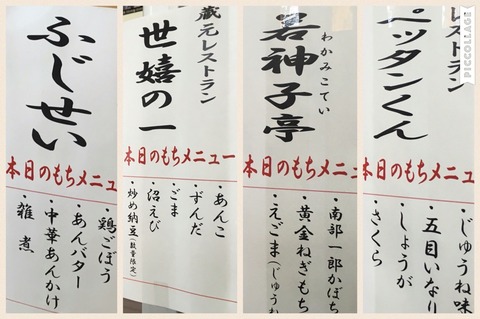 ふじせい
本日のもちメニュ
・鶏ごぼう
・あんバター
・中華あんかけ
・雑煮
蔵元レストラン
世嬉の一
本日のもちメニュー
・あんこ
・ずんだ
・ごま
・沼えび
・炒め納豆(数量限定)
わかみこてい
若神子亭
本日のもちメニュ
・南部一郎かぼち
・黄金ねぎもち
・えごま(じゅうね
レストラン
ペッタンくん
本日のもちメニュ
じゅうね味
・五目いなり
・しょうが
・さくら
PICCOLLAGE